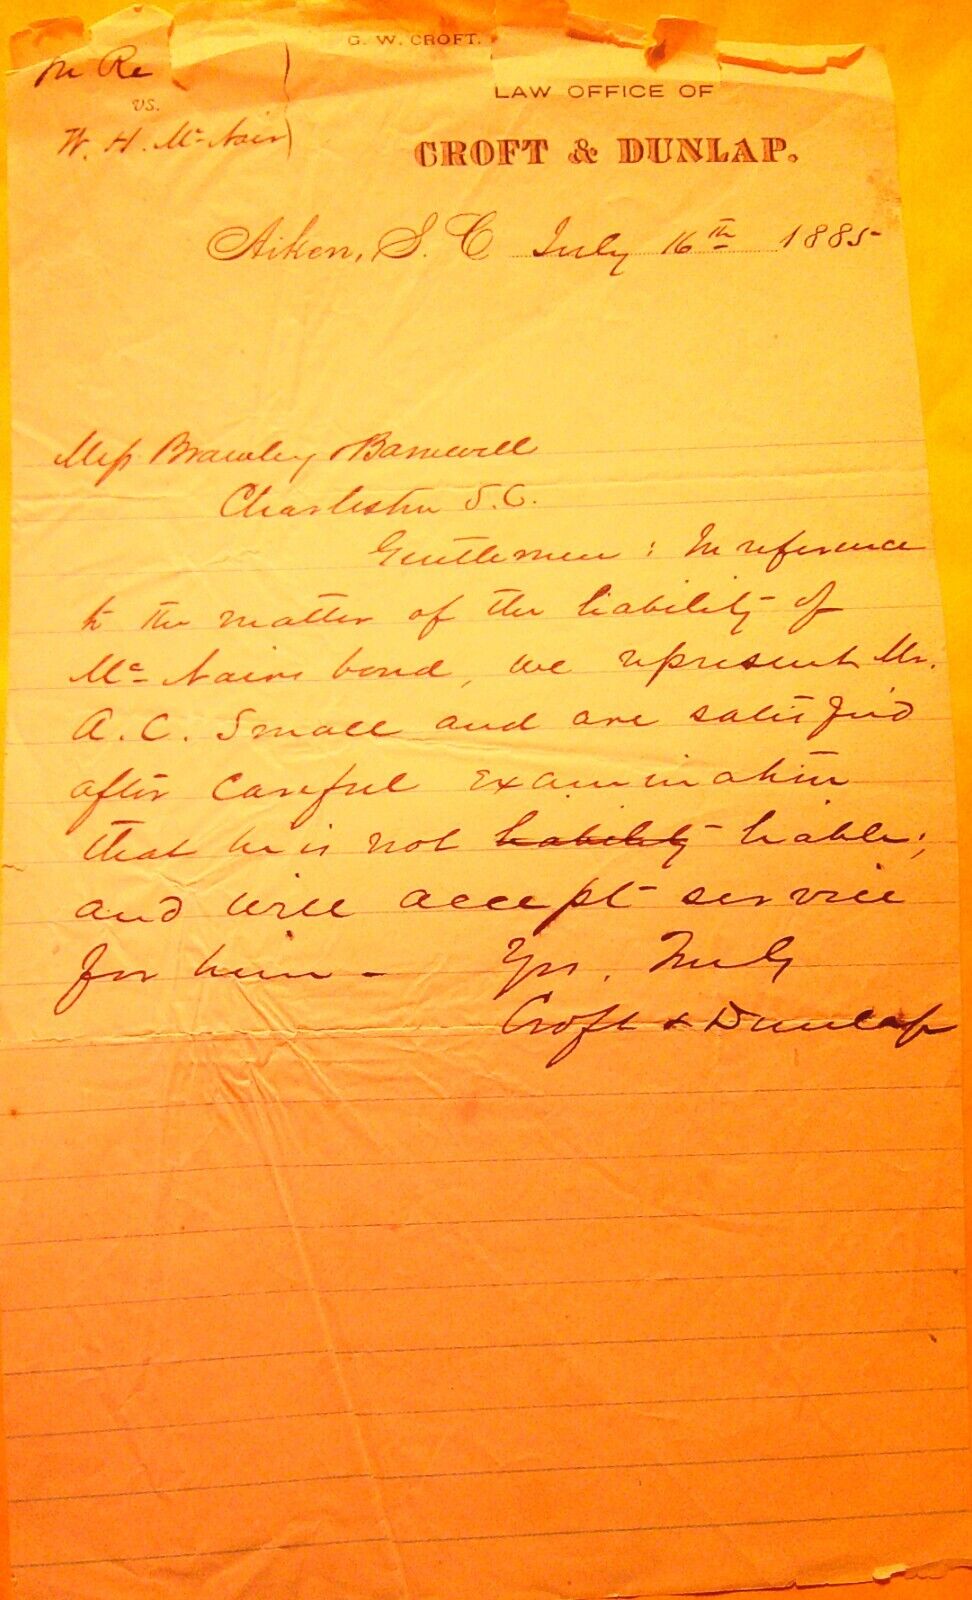 G. W. CROFT.
In Re
vs.
W. H. McNair
LAW OFFICE OF
CROFT & DUNLAP.
Aiken, S. C. July 16th 1885
Mess Brawley & Barnwell
Charleston S.C.
Gentlemen: In reference
to the matter of the liability of
McNairs bond, we represent Mr.
A. C. Small and are satisfied
after careful examination
that he is not liability liable;
and will accept service
for him - Yrs. Truly
Croft & Dunlap